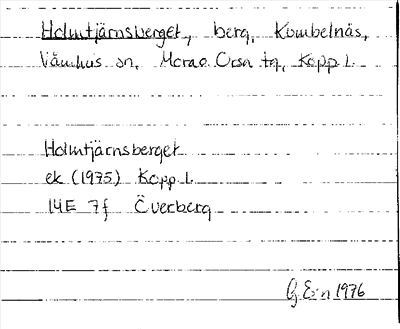 Holmtjärnsberget, berg, Kumbelnäs,
Våmhus sn, Mora o. Orsa tg, Kopp. l.
Holmtjärnsberget
ek (1975) Kopp. l.
14E 7f Överberg
G. E:n 1976